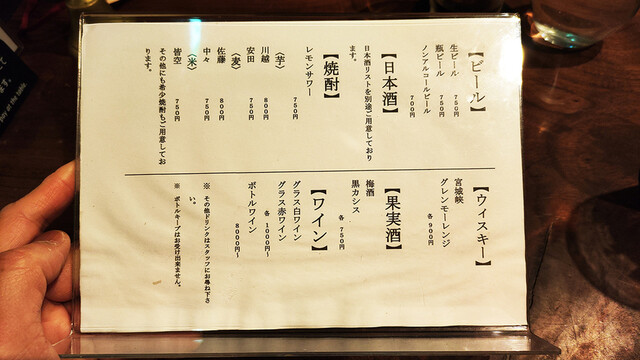 【ビール】
生ビール 750円
瓶ビール 750円
ノンアルコールビール
700円
【日本酒】
日本酒リストを別途ご用意しており
ます。
【焼酎】
レモンサワー
750円
〈芋〉
川越 800円
安田 750円
〈麦〉
佐藤 800円
中々 750円
〈米〉
皆空 750円
その他にも希少焼酎もご用意してお
ります。
【ウィスキー】
宮城峡
グレンモーレンジ
各 900円
【果実酒】
梅酒
黒カシス
各 750円
【ワイン】
グラス白ワイン
グラス赤ワイン
各 1000円~
ボトルワイン
8000円~
※ その他ドリンクはスタッフにお尋ね下さ
い。
※ ボトルキープはお受け出来ません。